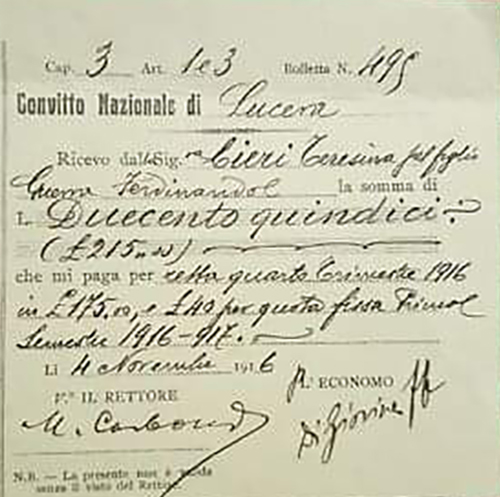 Cap. 3 Art. 1e3 Bolletta N. 495
Convitto Nazionale di Lucera
Ricevo dalla Sig.ra Cieri Teresina pel figlio
Guerra Ferdinando
la somma di
L. Duecento quindici
(£215,00)
che mi paga per retta quarto trimestre 1916
in £175.00, e £40 per quota fissa Primo
Semestre 1916-917.
Lì 4 Novembre 1916
V.° IL RETTORE
L'ECONOMO
M.
Di Giovine
N.B. — La presente non è valida
senza il visto del Rettore